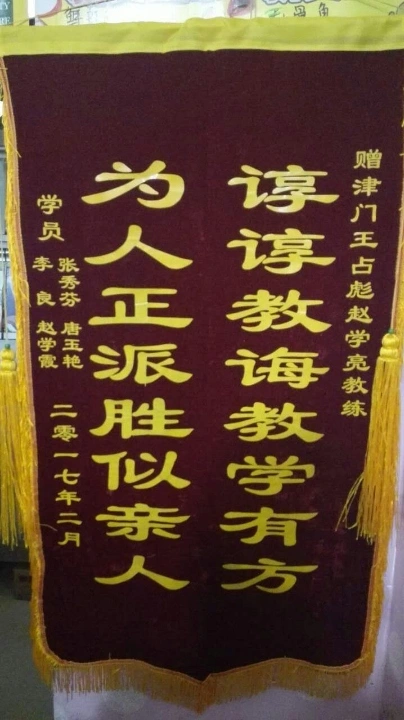 赠津门王占彪赵学亮教练
谆谆教诲教学有方
为人正派胜似亲人
学员
张秀芬 唐玉艳
李良 赵学霞
二零一七年二月